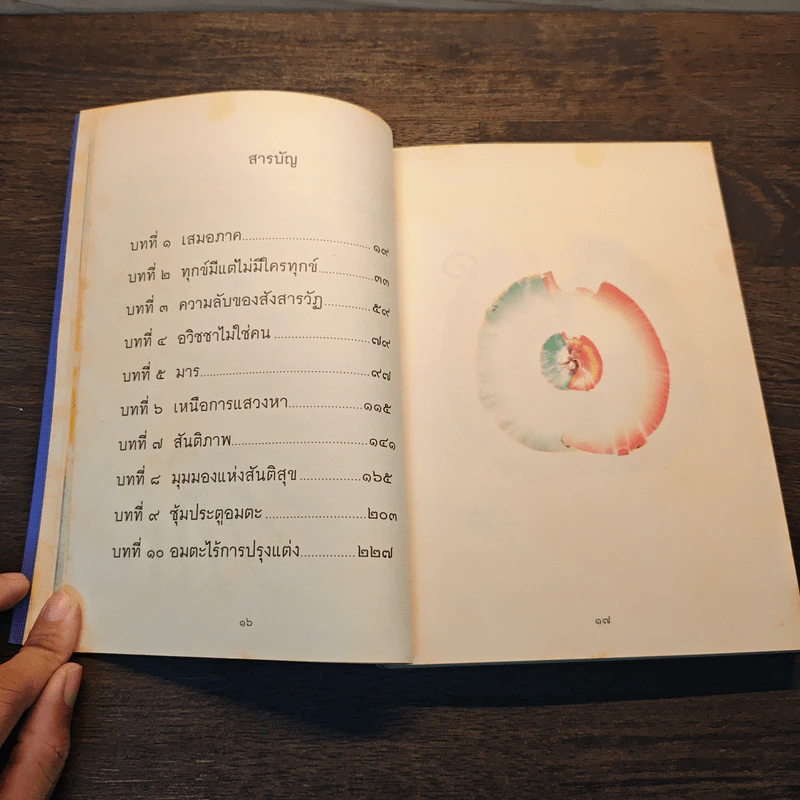 สารบัญ
บทที่ ๑ เสมอภาค..............................๑๙
บทที่ ๒ ทุกข์มีแต่ไม่มีใครทุกข์.............๓๓
บทที่ ๓ ความลับของสังสารวัฏ............๕๙
บทที่ ๔ อวิชชาไม่ใช่คน......................๗๙
บทที่ ๕ มาร......................................๙๗
บทที่ ๖ เหนือการแสวงหา.................๑๑๕
บทที่ ๗ สันติภาพ............................๑๔๑
บทที่ ๘ มุมมองแห่งสันติสุข...............๑๖๕
บทที่ ๙ ซุ้มประตูอมตะ.....................๒๐๓
บทที่ ๑๐ อมตะไร้การปรุงแต่ง.............๒๒๗
๑๖
๑๗